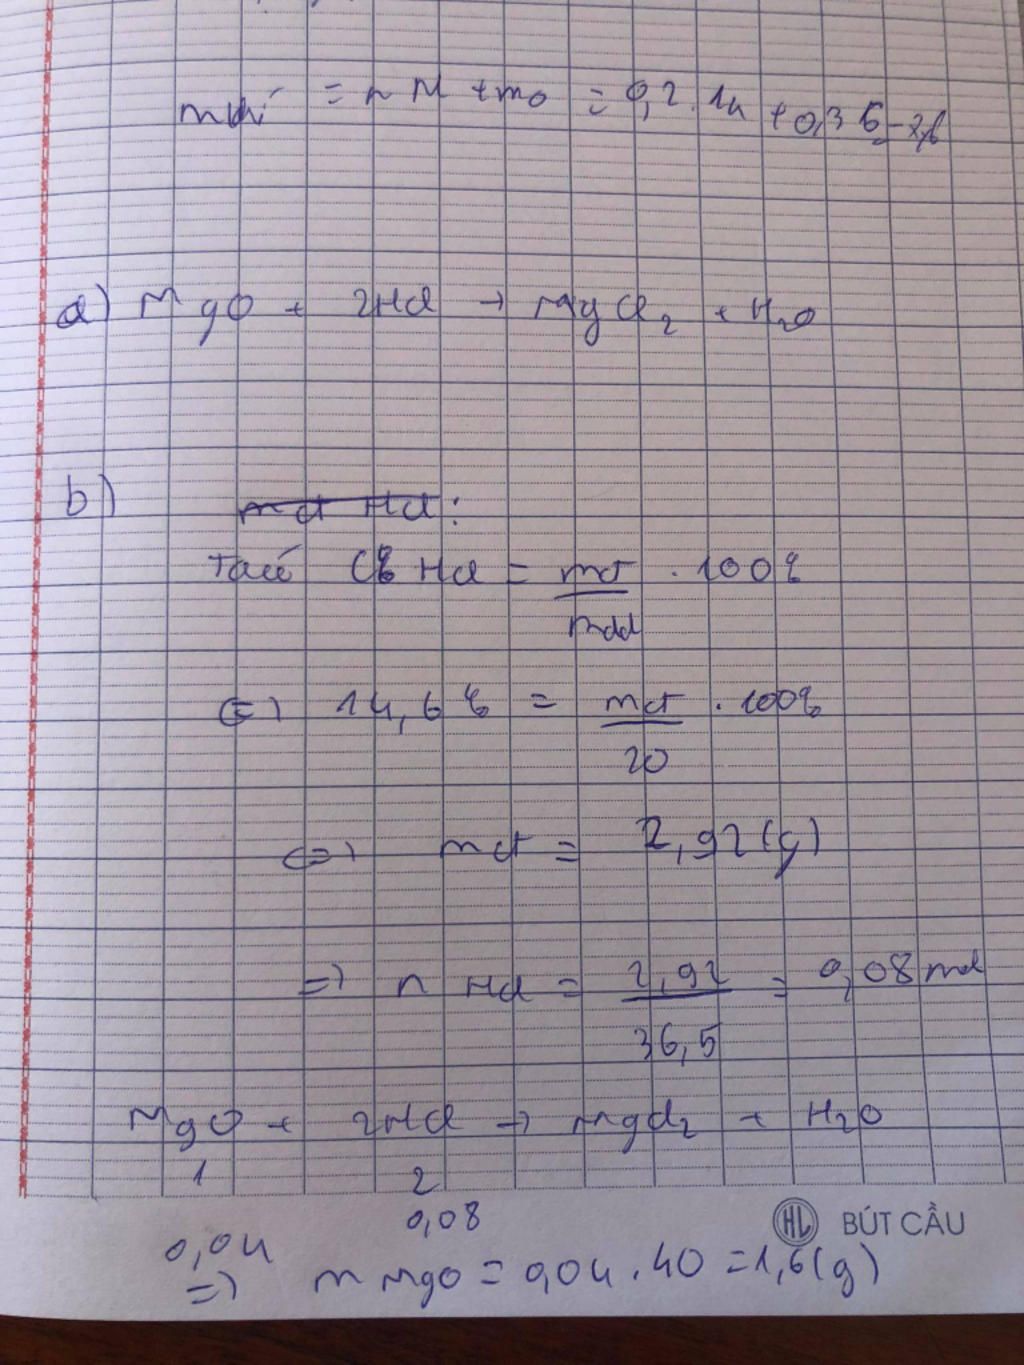 mkhí = n N + mO = 0,2 . 14 + 0,3
a) MgO + 2HCl → MgCl2 + H2O
b) mct HCl:
Ta có C% HCl = mct/mdd . 100%
<=> 14,6% = mct/20 . 100%
<=> mct = 2,92(g)
=> n HCl = 2,92/36,5 = 0,08 mol
MgO + 2HCl → MgCl2 + H2O
1 2
0,04 0,08
HL BÚT CẦU
=> m MgO = 0,04 . 40 = 1,6(g)